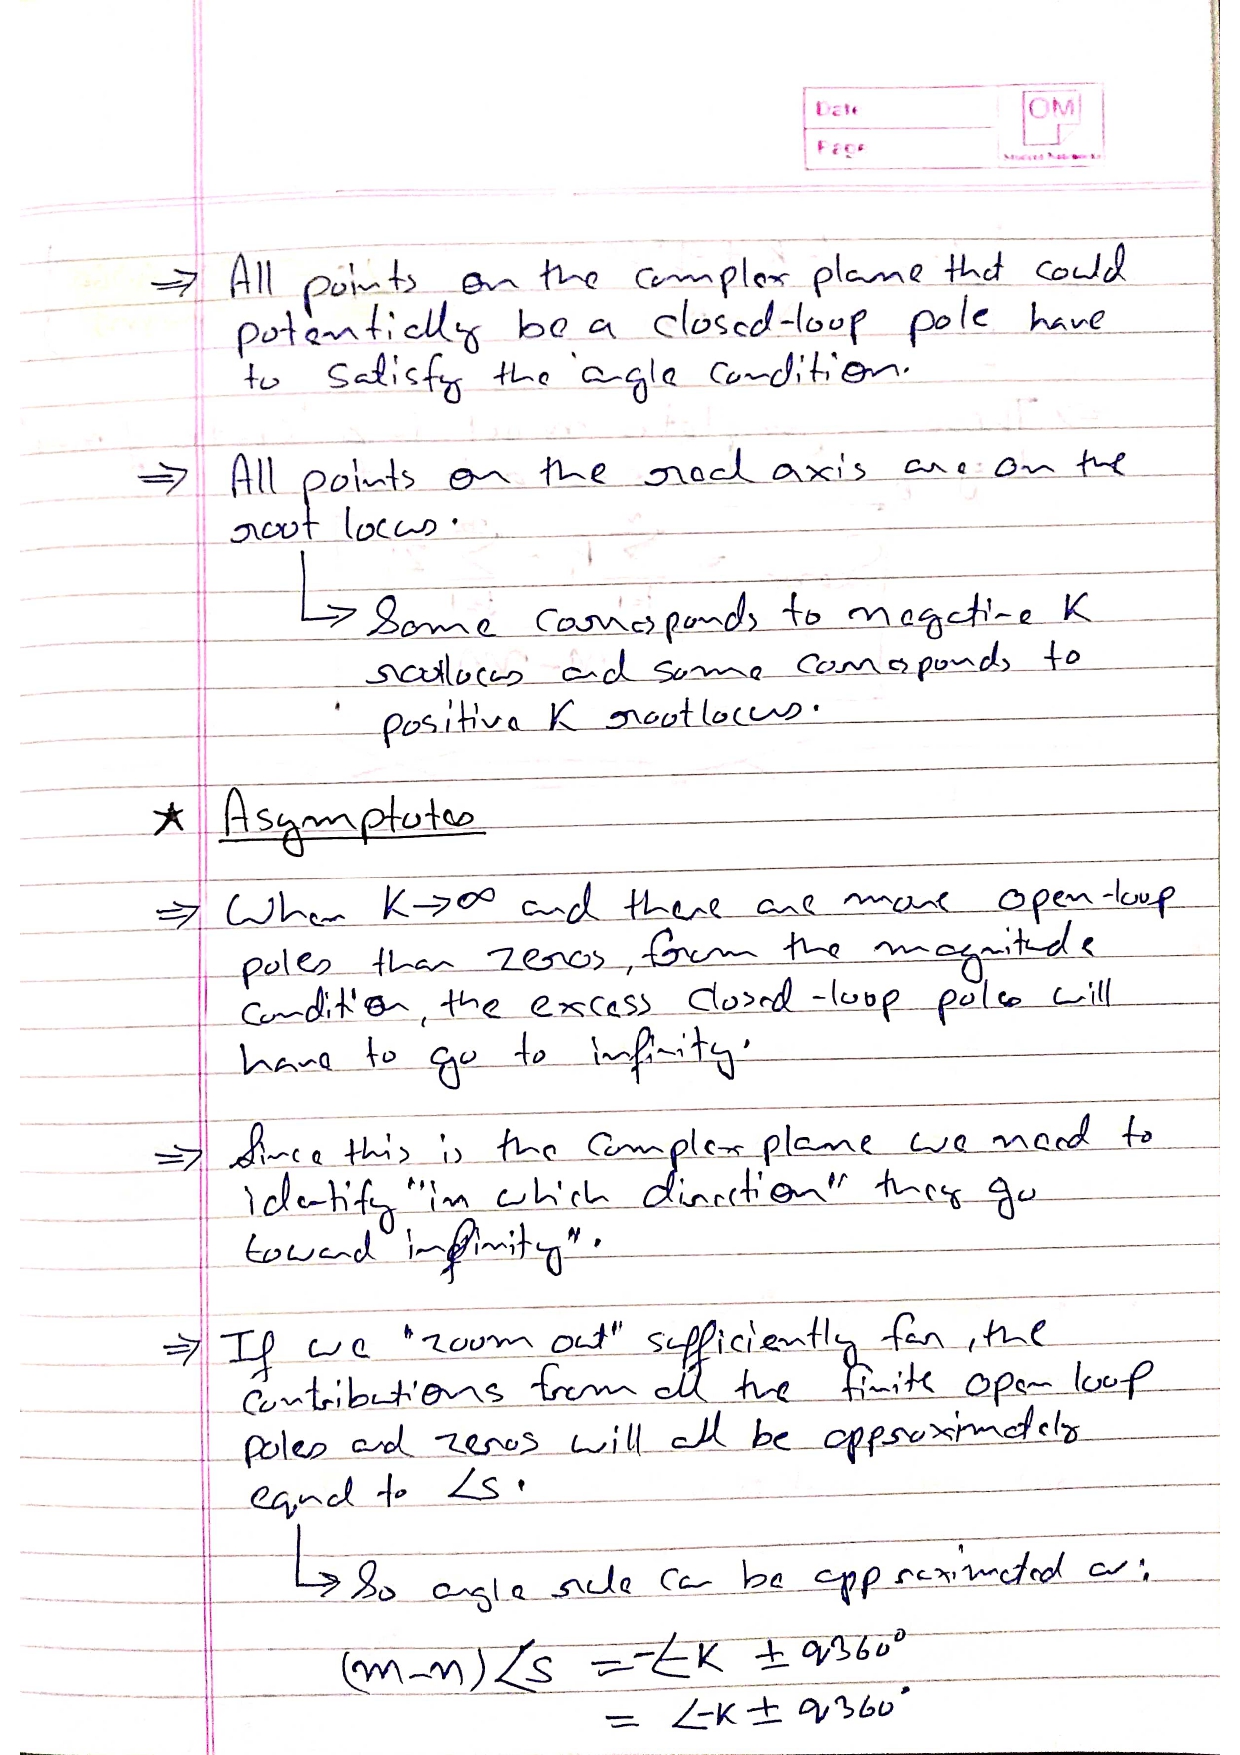 Date
OM
Page
⇒ All points on the complex plane that could
potentially be a closed-loop pole have
to satisfy the angle condition.
⇒ All points on the real axis are on the
root locus.
↳ Some corresponds to negative K
rootlocus and some corresponds to
positive K rootlocus.
★ Asymptotes
⇒ When K→∞ and there are more open-loop
poles than zeros, from the magnitude
condition, the excess closed-loop poles will
have to go to infinity.
⇒ Since this is the complex plane we need to
identify "in which direction" they go
toward "infinity".
⇒ If we "zoom out" sufficiently far, the
contributions from all the finite open loop
poles and zeros will all be approximately
equal to ∠s.
↳ So angle rule can be approximated as:
(m-n)∠s = -∠K ± q360°
= ∠-K ± q360°